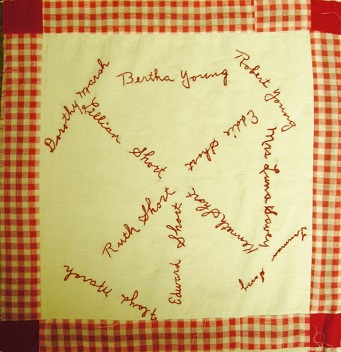 Bertha Young
Robert Young
Dorothy Marsh
Lillian Short
Eddie Short
Mrs Luna
Kenneth Short
Ruth Short
Edward Short
Floyd Marsh